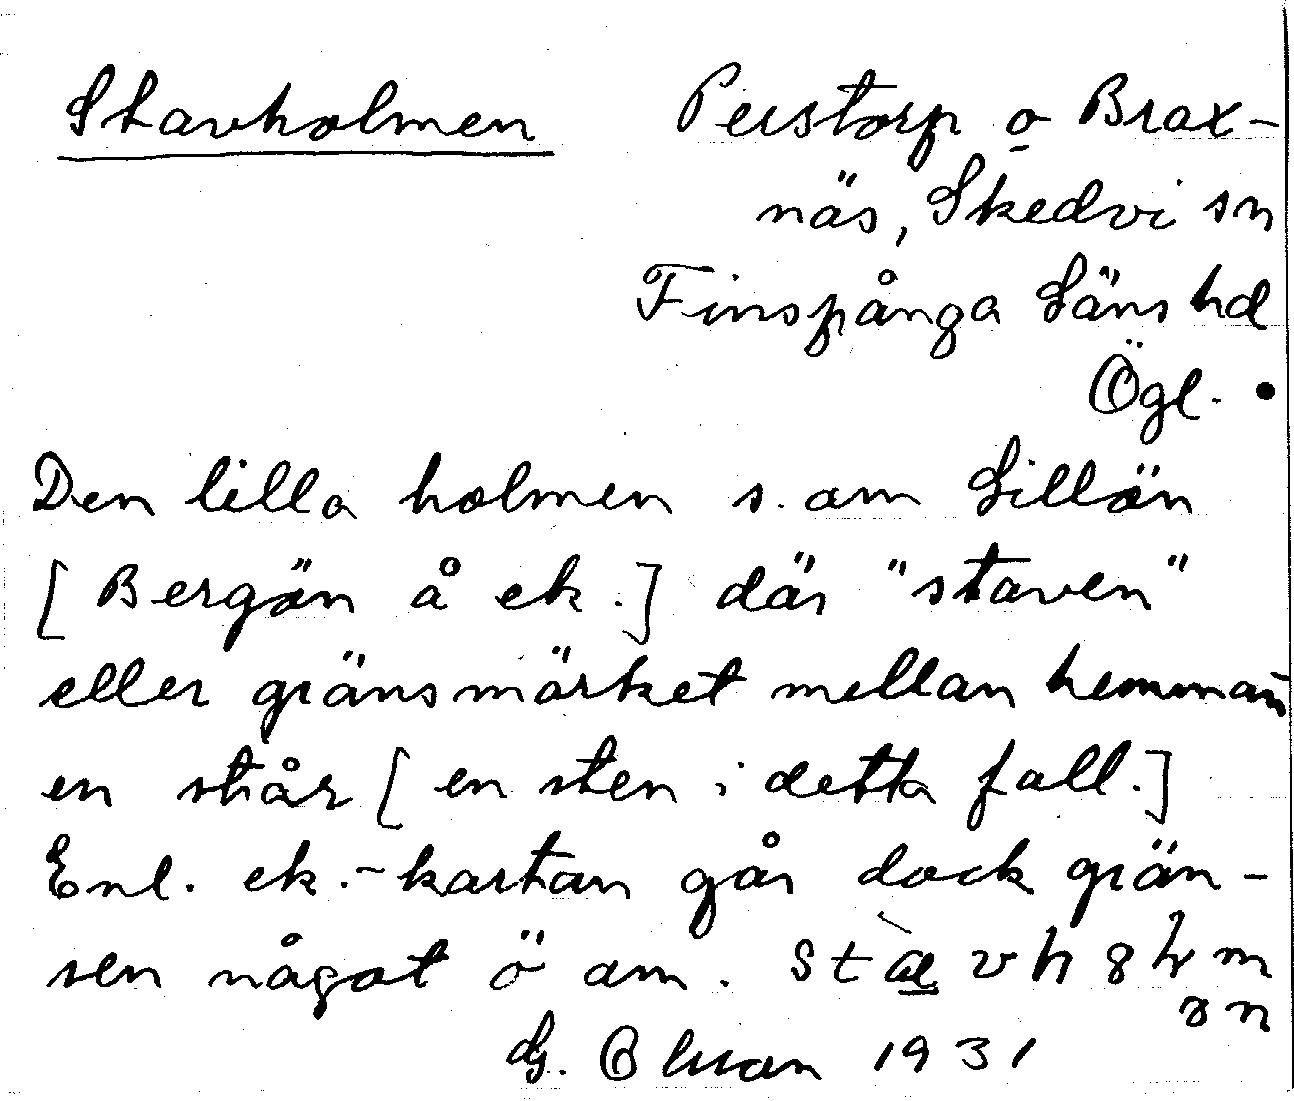 Stavholmen Perstorp o Brax-
näs, Skedvi sn
Finspånga Läns hd
Ögl.
Den lilla holmen s. om Lillön
[Bergön å ek.] där "staven"
eller gränsmärket mellan hemman
en står [en sten i detta fall.]
Enl. ek.-kartan går dock grän-
sen något ö om.
G. Olson 1931